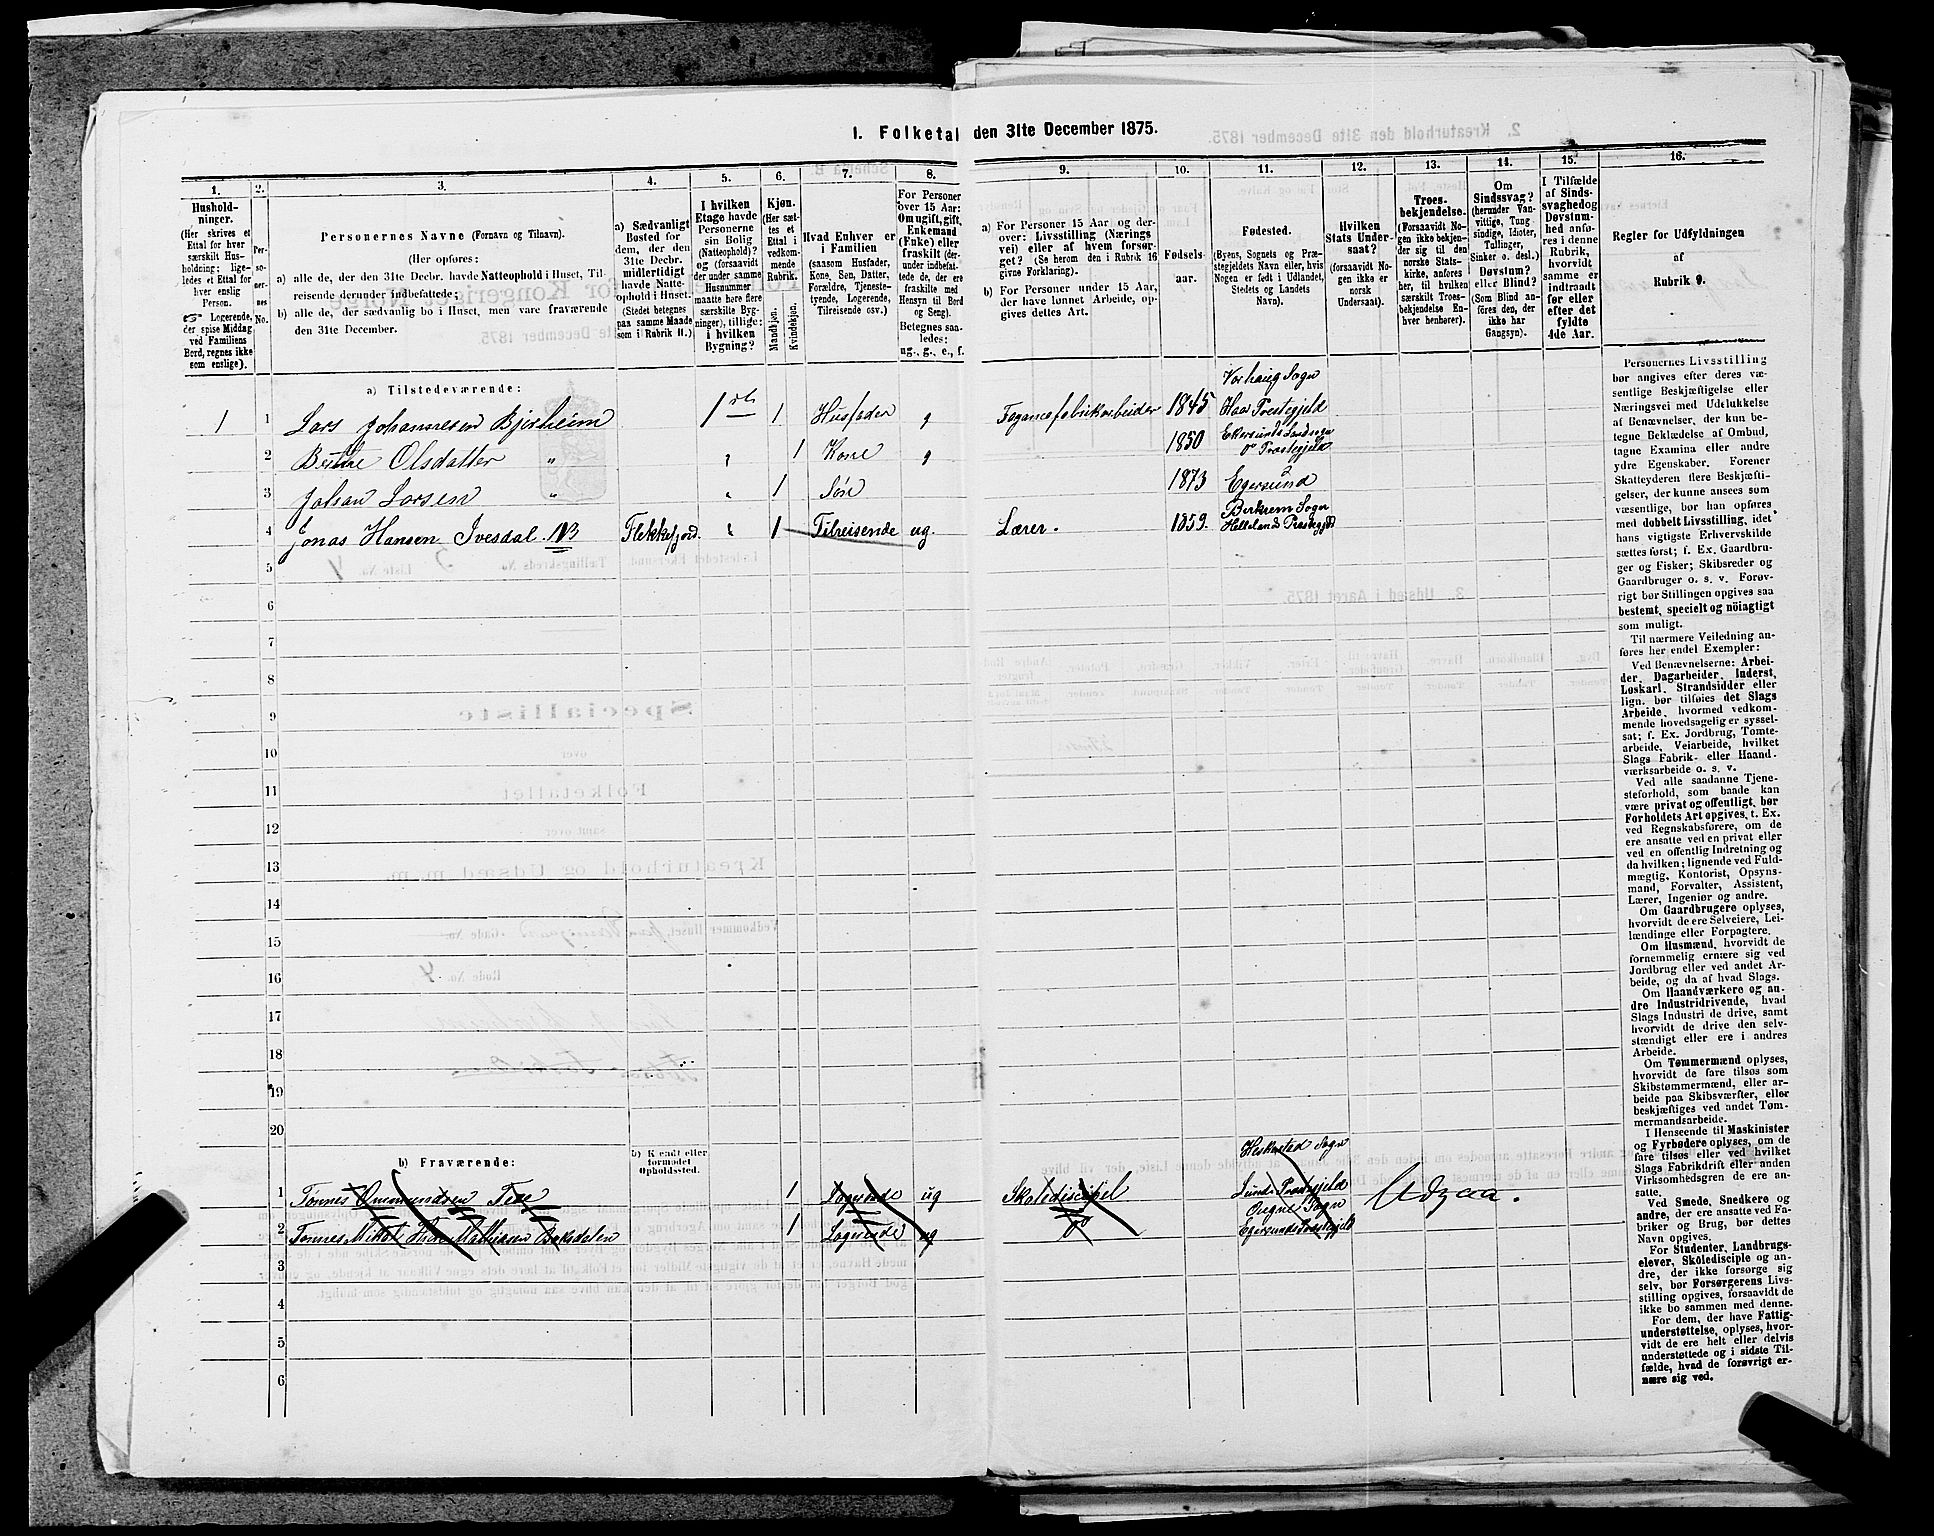 1. Folketal den 31te December 1875.
1. 2. 3. 4. 5. 6. 7. 8. 9. 10. 11. 12. 13. 14. 15. 16.
Husholdninger.
(Her skrives et
Ettal for hver
særskilt Hus-
holdning; lige-
ledes et Ettal for
hver enslig
Person.
Logerende,
der spise Middag
ved Familiens
Bord, regnes ikke
som enslige).
Per-
so-
ner-
nes
No.
Personernes Navne (Fornavn og Tilnavn).
(Her opføres:
a) alle de, der den 31te Decbr. havde Natteophold i Huset, Til-
reisende derunder indbefattede;
b) alle de, der sædvanlig bo i Huset, men vare fraværende
den 31te December.
a) Sædvanligt
Bosted for
dem, der den
31te Decbr.
midlertidigt
havde Natte-
ophold i Huset.
(Stedet betegnes
paa samme Maade
som i Rubrik 11.)
I hvilken
Etage havde
Personerne
sin Bolig
(Natteophold)?
og (forsaavidt
der under samme
Husnummer
maatte høre flere
særskilte Byg-
ninger), tillige:
i hvilken
Bygning?
Kjøn.
(Her sæt-
tes et
Ettal i
vedkom-
mende
Rubrik.
Mandkjøn.
Kvindekjøn.
Hvad Enhver er
i Familien
(saasom Husfader,
Kone, Søn, Datter,
Forældre, Tjeneste-
tyende, Logerende,
Tilreisende osv.)
For Personer
over 15 Aar:
Om ugift, gift,
Enkemand
(Enke) eller
fraskilt (der-
under indbefat-
tede de, der ere
fraskilte med
Hensyn til Bord
og Seng).
Betegnes saa-
ledes:
ug., g., e., f.
a) For Personer 15 Aar og der-
over: Livsstilling (Nærings-
vei) eller af hvem forsør-
get? (Se herom den i Rubrik 16
givne Forklaring).
b) For Personer under 15 Aar,
der have lønnet Arbeide, op-
gives dettes Art.
Fødsels-
aar.
Fødested.
(Byens, Sognets og Præ-
stegjeldets Navn eller, hvis
Nogen er født i Udlandet,
Stedets og Landets
Navn).
Hvilken
Stats Under-
saat?
(forsaavidt No-
gen ikke er
norsk
Undersaat).
Troes-
bekjendelse.
(Forsaavidt No-
gen ikke bekjen-
der sig til den
norske Stats-
kirke, anføres
her, til hvilken
særskilt Troes-
bekjendelse En-
hver henhører).
Om
Sindssvag?
(herunder Van-
vittige, Tung-
sindige, Idioter,
Tullinger,
Sinker o. desl.)
Døvstum?
eller Blind?
(Som Blind an-
føres den, der
ikke har
Gangsyn).
I Tilfælde
af Sinds-
svaghed og
Døvstum-
hed anfø-
res i denne
Rubrik,
hvorvidt
samme er
indtraadt
før eller
efter det
fyldte
4de Aar.
Regler for Udfyldningen
af
Rubrik 9.
a) Tilstedeværende:
Vorhaug Sogn
1 1 Lars Johannesen Bjerheim 1ste 1 Husfader g Fayancefabrikarbeider 1845 Haa Prestegjeld
Ekersunds Landsogn
2 Berthe Olsdatter „ „ 1 Kone g 1850 o Prestegjeld
3 Johan Larsen „ „ 1 Søn 1873 Egersund
Birkrem Sogn
4 Jonas Hansen Ivesdal Flekkefjord. „ 1 Tilreisende ug. Lærer. 1859. Hellelands Prestegjeld
5
6
7
8
9
10
11
12
13
14
15
16
17
18
19
20
b) Fraværende:
b) Kjendt eller
formodet
Opholdssted.
Heskestad Sogn
1 Tønnes Ommundsen 1 Logerende ug Skolediscipel Lunde Prestegjeld Udgaa.
Sogn
2 Tonnes 1 Logerende ug do Egersunds Prestegjeld
3
4
5
6
Personernes Livsstilling
bør angives efter deres væ-
sentlige Beskjæftigelse eller
Næringsvei med Udelukkelse
af Benævnelser, der kun be-
tegne Beklædelse af Ombud,
tagne Examina eller andre
ydre Egenskaber. Forener
Skatteyderen flere Beskjæfti-
gelser, der kunne ansees som
væsentlige, bør han opføres
med dobbelt Livsstilling, idet
hans vigtigste Erhvervskilde
sættes først; f. Ex. Gaardbru-
ger og Fisker; Skibsreder og
Gaardbruger o. s. v. Forøv-
rigt bør Stillingen opgives saa
bestemt, specielt og nöiagtigt
som muligt.
Til nærmere Veiledning an-
føres her endel Exempler:
Ved Benævnelserne: Arbei-
der, Dagarbeider, Inderst,
Løskarl, Strandsidder eller
lign. bør tilføies det Slags
Arbeide, hvormed vedkom-
mende hovedsagelig er syssel-
sat; f. Ex. Jordbrug, Tomte-
arbeide, Veiarbeide, hvilket
Slags Fabrik- eller Haand-
værksarbeide o. s. v.
Ved alle saadanne Tjene-
steforhold, som baade kan
være privat og offentligt, bør
Forholdets Art opgives, t. Ex.
ved Regnskabsførere, om de
ere ansatte ved en privat eller
ved en offentlig Indretning og
da hvilken; lignende ved Fuld-
mægtig, Kontorist, Opsyns-
mand, Forvalter, Assistent,
Lærer, Ingeniør og andre.
Om Gaardbrugere oplyses,
hvorvidt de ere Selveiere, Lei-
lændinge eller Forpagtere.
Om Husmænd, hvorvidt de
fornemmelig ernære sig ved
Jordbrug eller ved andet Ar-
beide, og da af hvad Slags.
Om Haandværkere og an-
dre Industridrivende, hvad
Slags Industri de drive, samt
hvorvidt de drive den selv-
stændigt eller ere i andres
Arbeide.
Om Tømmermænd oplyses,
hvorvidt de fare tilsøs som
Skibstømmermænd, eller ar-
beide paa Skibsværfter, eller
beskjæftiges ved andet Tøm-
mermandsarbeide.
I Henseende til Maskinister
og Fyrbødere oplyses, om de
fare tilsøs eller ved hvilket
Slags Fabrikdrift eller anden
Virksomhedsgren de ere an-
satte.
Ved Smede, Snedkere og
andre, der ere ansatte ved Fa-
briker og Brug, bør dettes
Navn opgives.
For Studenter, Landbrugs-
elever, Skoledisciple og an-
dre, der ikke forsørge sig
selv, bør Forsørgerens Livs-
stilling opgives, forsaavidt de
ikke bo sammen med denne.
For dem, der have Fattig-
understøttelse, oplyses, hvor-
vidt de ere helt eller delvis
understøttede og i sidste Til-
fælde, hvad de forøvrigt er-
nære sig ved.